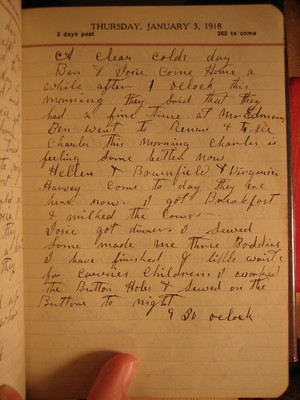 THURSDAY, JANUARY 3, 1918
3 days past 362 to come
A clear colds day
Ben & Josie come Home a
while after 1 oclock this
morning they said that they
had a fine time at Mr Edmans
Ben went to Renan & to see
Charlie this morning Charlie is
feeling some better now
Hellen & Bournfield & Virginia
Harvey come to day they are
here now. I got Breakfast
& milked the cows
Josie got dinner I sewed
some made are three Boddies
I have finished 4 little waists
for Carries Childrens I worked
the Button Holes & sewed on the
Buttons to night
9 30 oclock